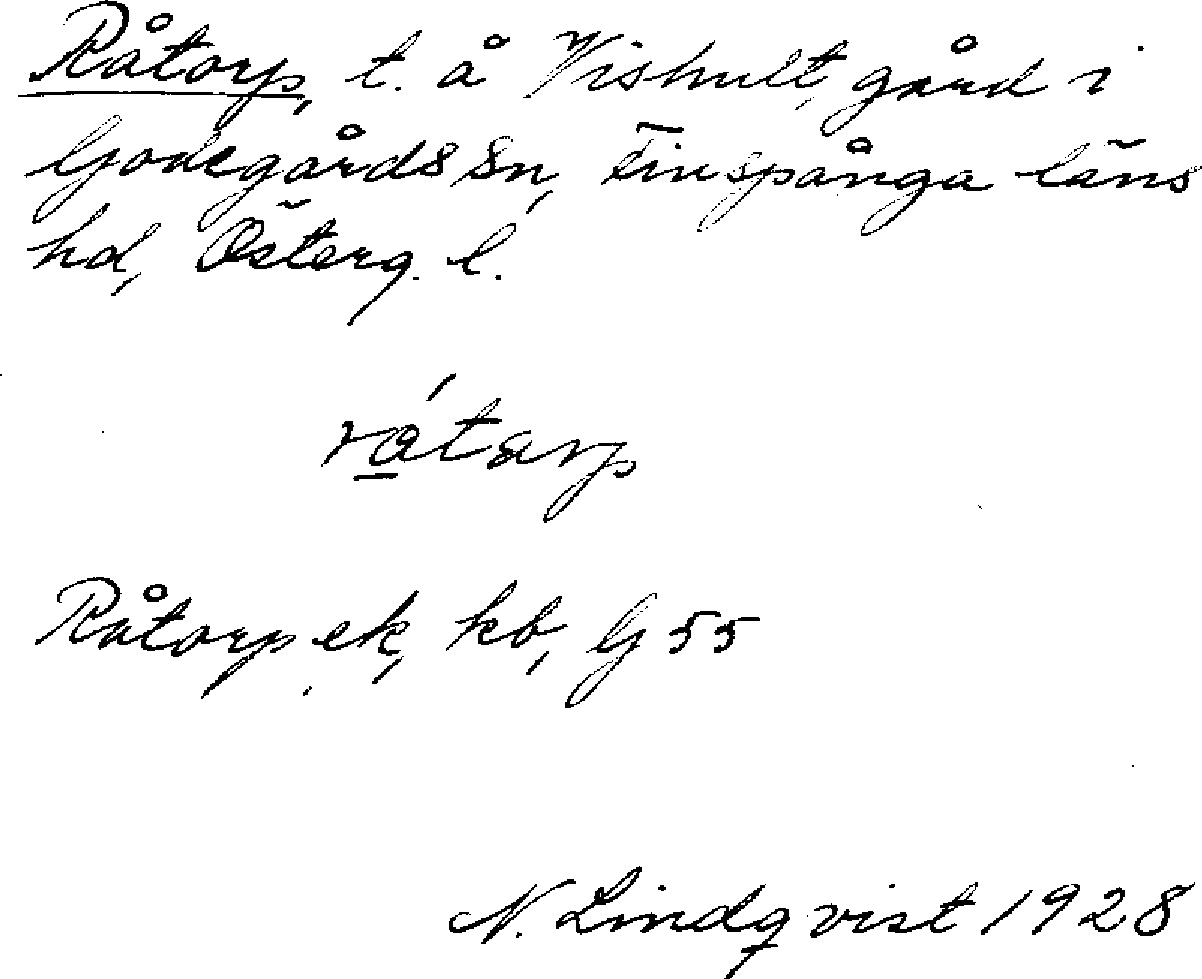 Råtorp, t. å Vishult, gård i
Godegårds sn, Finspånga läns
hd, Österg. l.
råtarp
Råtorp, ek, kb, G 55
N. Lindqvist 1928